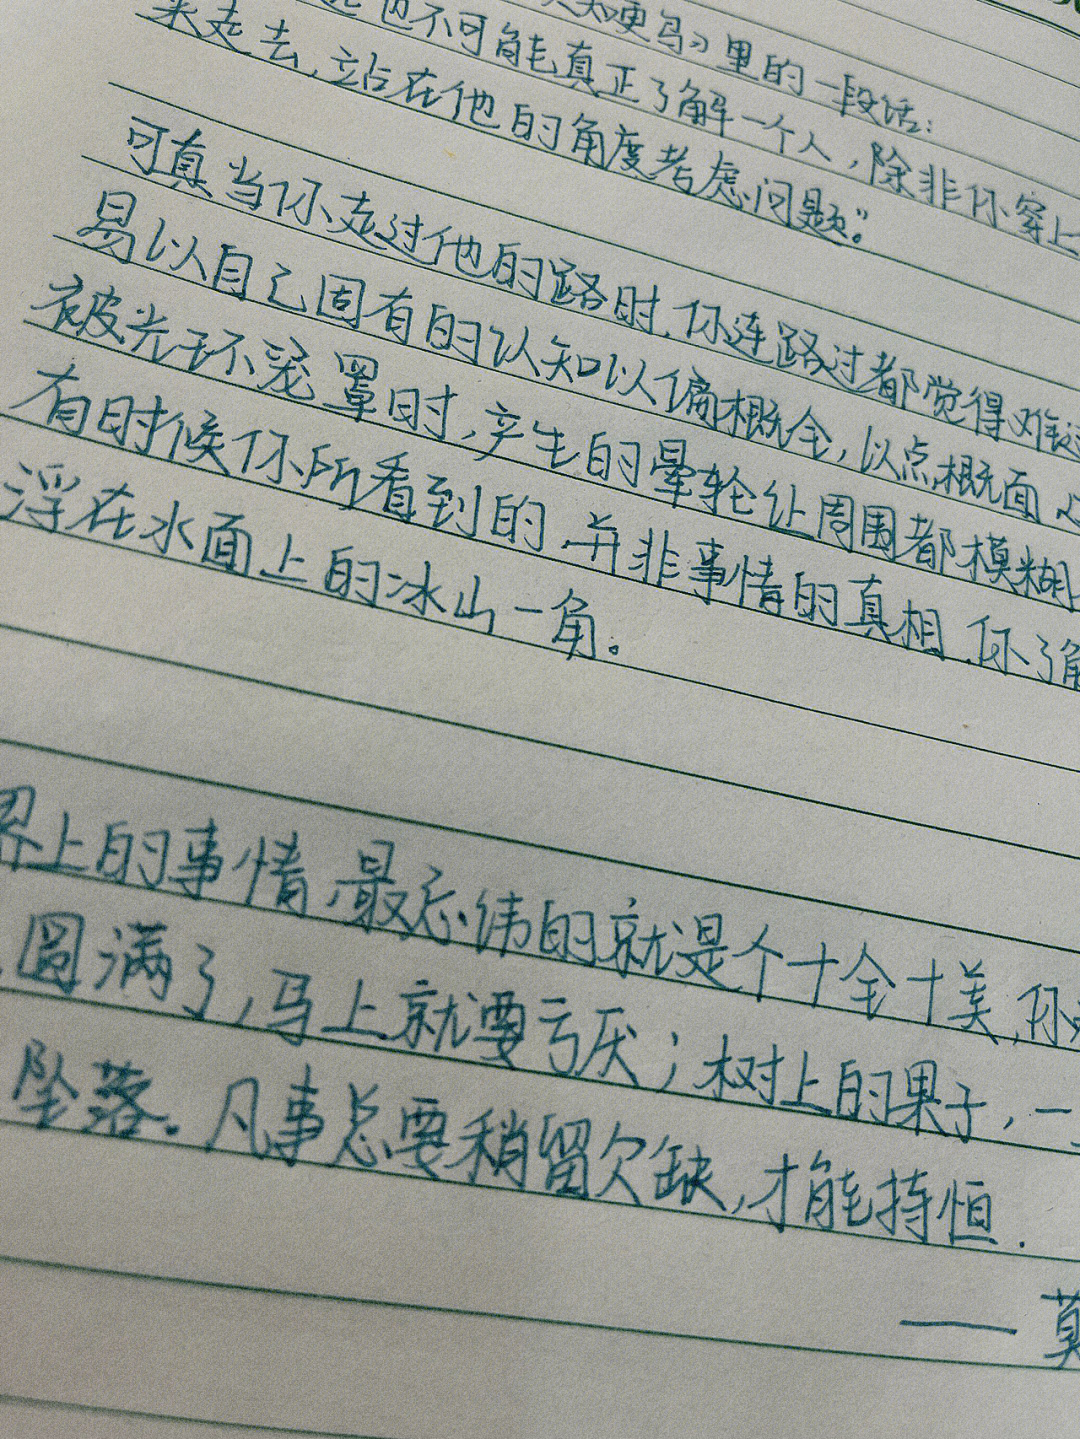 知更鸟》里的一段话:
也不可能真正了解一个人,除非你穿上
来走去,站在他的角度考虑问题。”
可真当你走过他的路时,你连路过都觉得难
易以自己固有的认知以偏概全,以点概面,
被光环笼罩时,产生的晕轮让周围都模糊
有时候你所看到的,并非事情的真相,你了解
浮在水面上的冰山一角。
界上的事情,最忌讳的就是个十全十美,你
圆满了,马上就要亏厌;树上的果子,一
坠落。凡事总要稍留欠缺,才能持恒.
——莫